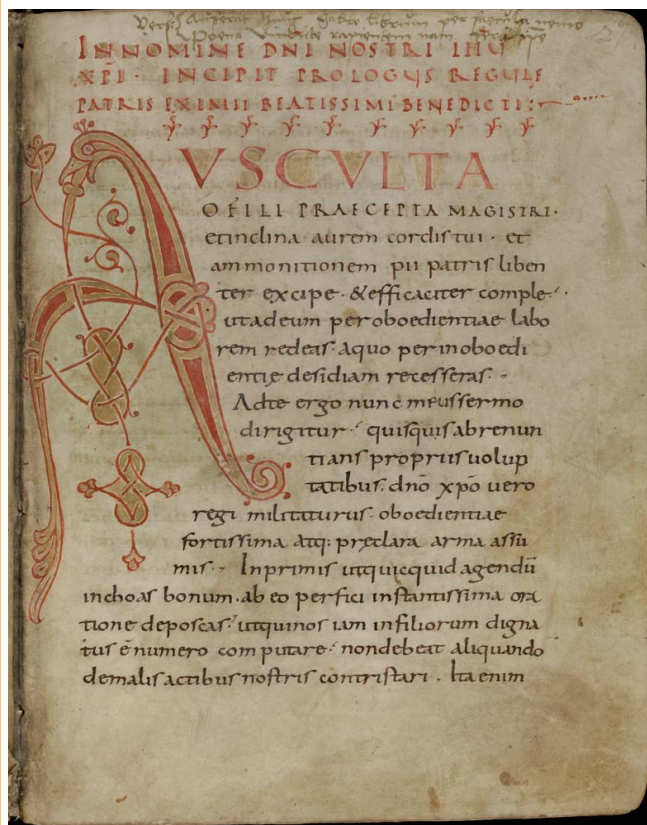 Vers Auferat hunc librum per saecula nemo
Poena rapientem nam
IN NOMINE DNI NOSTRI IHU
XPI · INCIPIT PROLOGUS REGULE
PATRIS EXIMII BEATISSIMI BENEDICTI :
AUSCULTA
O FILI PRAECEPTA MAGISTRI ·
et inclina aurem cordis tui · et
ammonitionem pii patris liben
ter excipe · & efficaciter comple ·
ut ad eum per oboedientiae labo
rem redeas · a quo per inoboedi
entię desidiam recesseras · -
Ad te ergo nunc meus sermo
dirigitur · quisquis abrenun
tians propriis uolup
tatibus · dnō xpō uero
regi militaturus · oboedientiae
fortissima atq: pręclara arma assū
mis · - In primis ut quicquid agendū
inchoas bonum · ab eo perfici instantissima ora
tione deposcas · ut qui nos iam in filiorum digna
tus ē numero computare · non debeat aliquando
de malis actibus nostris contristari · Ita enim